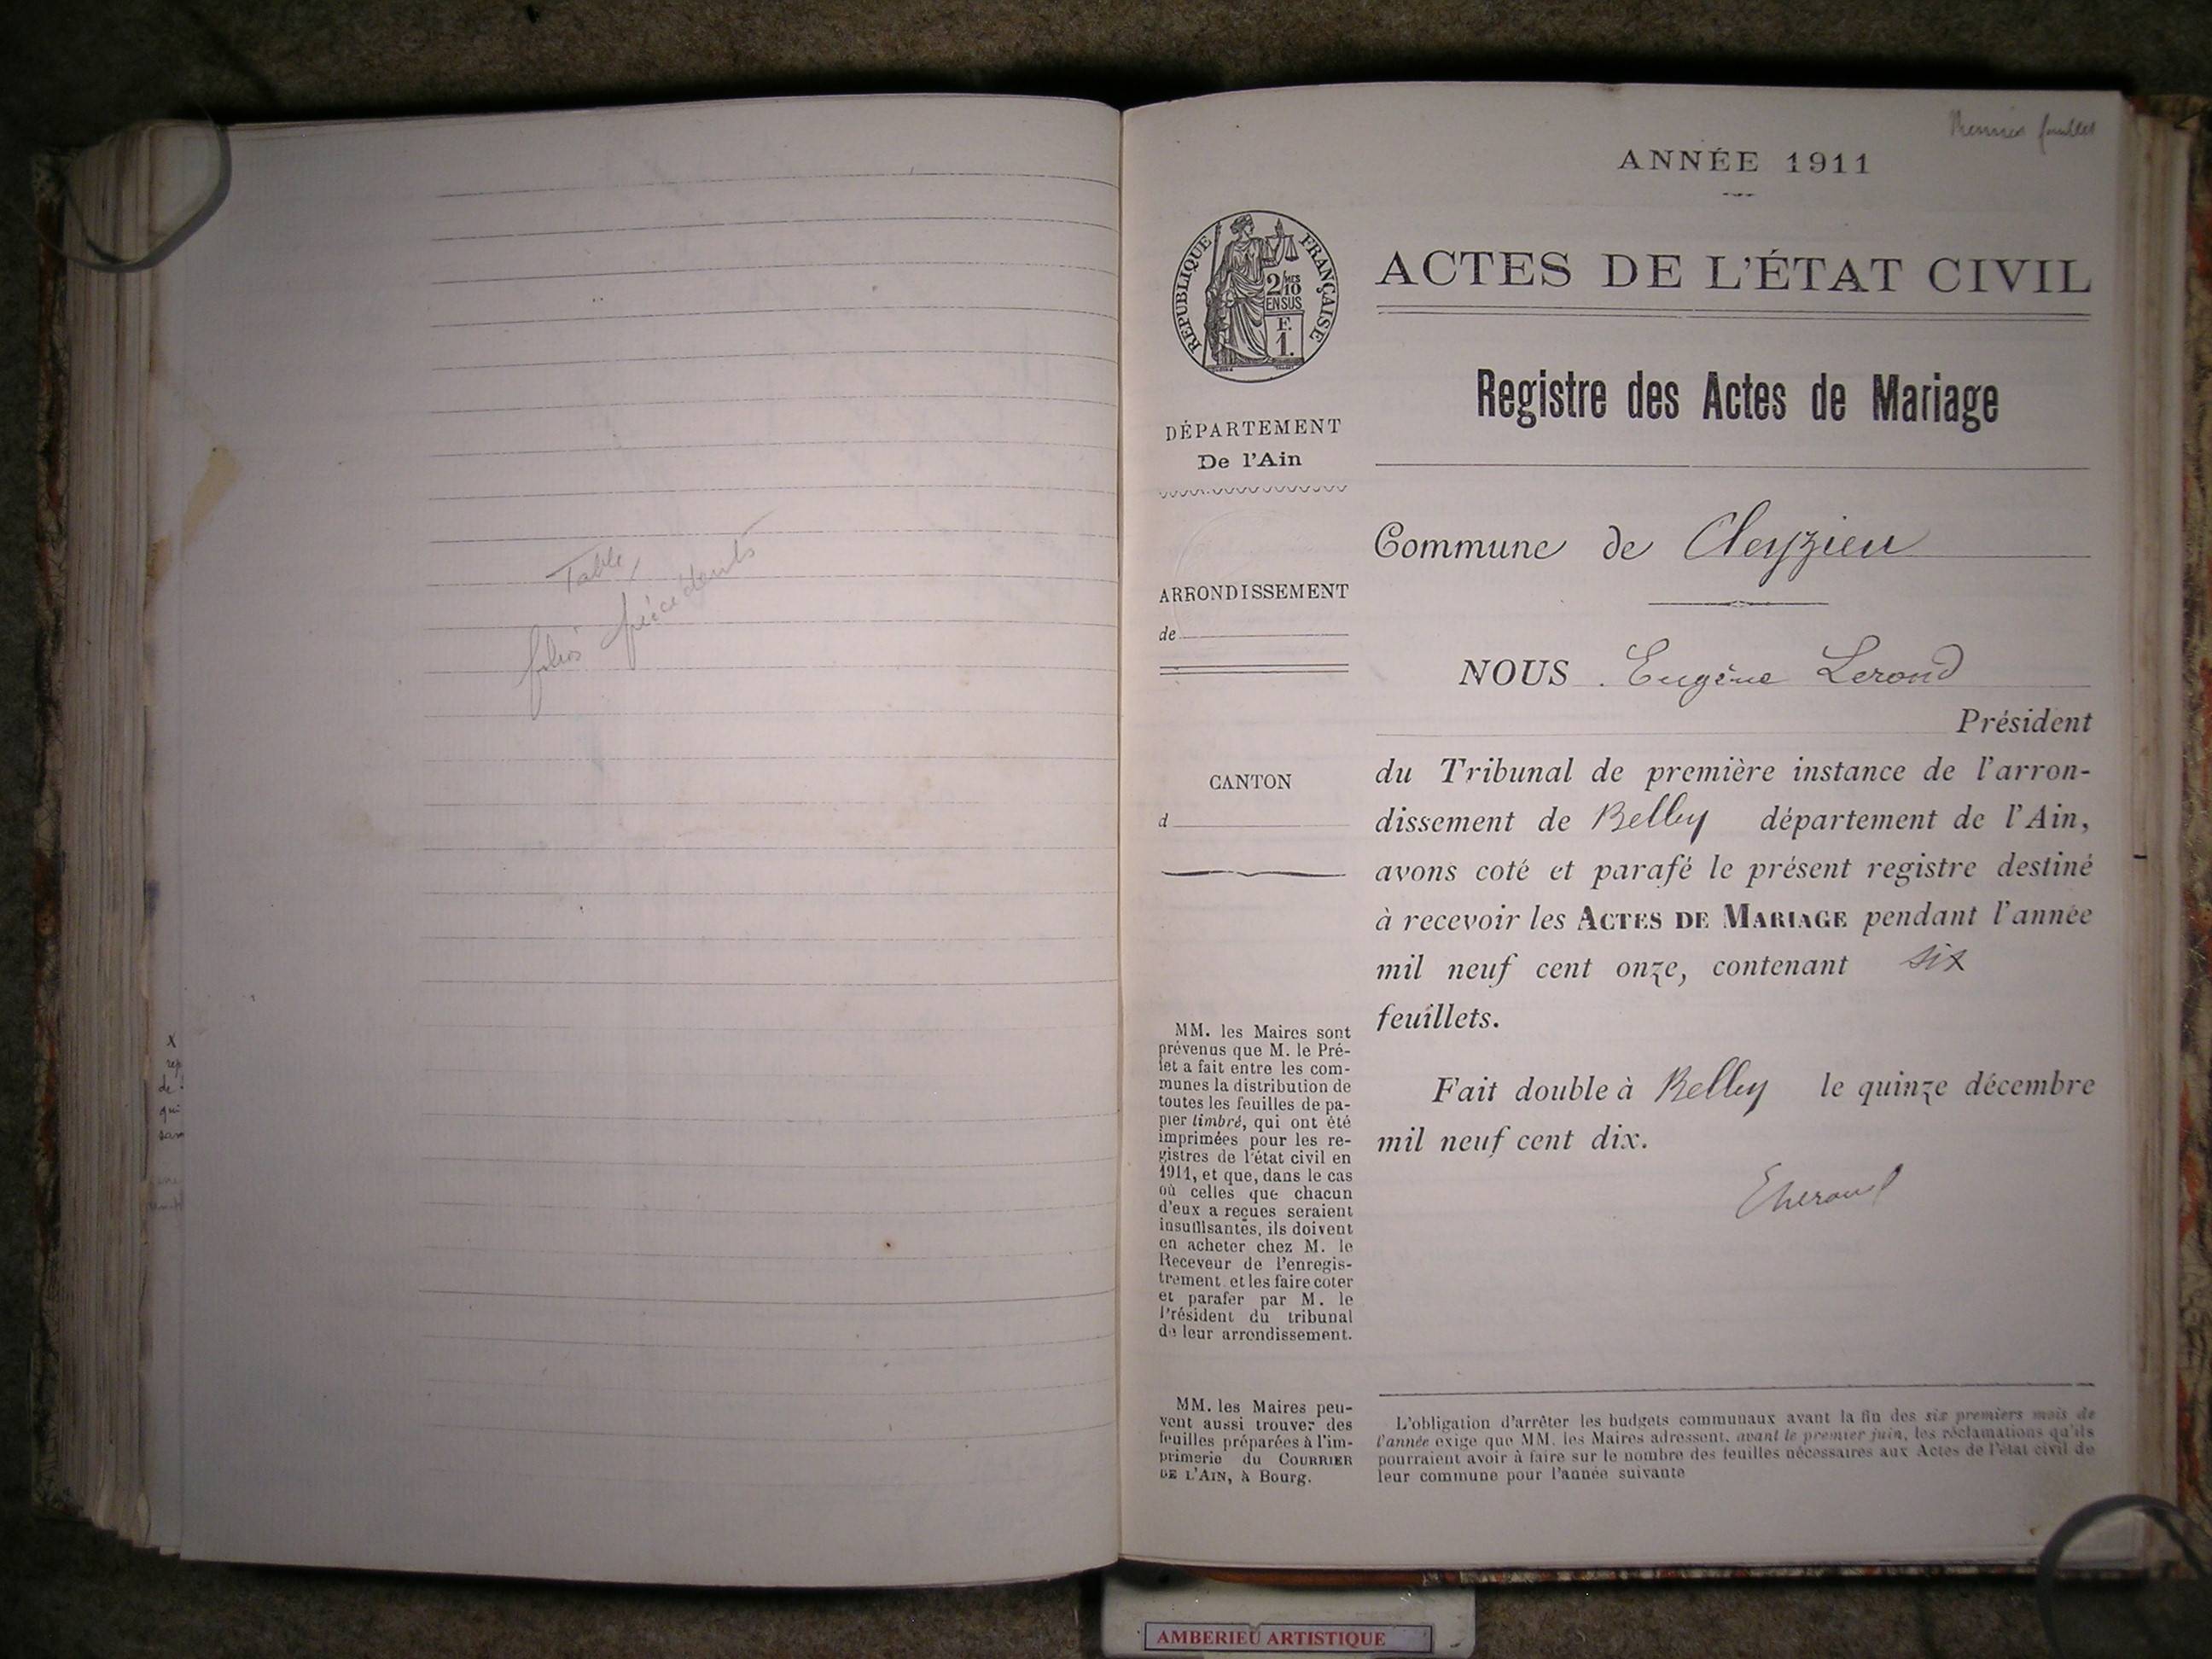 Table,
folios précédents
X
rep
de
qui
sam
Premier feuillet
ANNÉE 1911
RÉPUBLIQUE FRANÇAISE
2/10MES
EN SUS
F.
1.
ACTES DE L'ÉTAT CIVIL
Registre des Actes de Mariage
DÉPARTEMENT
De l'Ain
ARRONDISSEMENT
de
CANTON
d
MM. les Maires sont
prévenus que M. le Pré-
fet a fait entre les com-
munes la distribution de
toutes les feuilles de pa-
pier timbré, qui ont été
imprimées pour les re-
gistres de l'état civil en
1911, et que, dans le cas
où celles que chacun
d'eux a reçues seraient
insuffisantes, ils doivent
en acheter chez M. le
Receveur de l'enregis-
trement et les faire coter
et parafer par M. le
Président du tribunal
de leur arrondissement.
MM. les Maires peu-
vent aussi trouver des
feuilles préparées à l'im-
primerie du COURRIER
DE L'AIN, à Bourg.
Commune de Cleyzieu
NOUS Eugène Lerond
Président
du Tribunal de première instance de l'arron-
dissement de Belley département de l'Ain,
avons coté et parafé le présent registre destiné
à recevoir les ACTES DE MARIAGE pendant l'année
mil neuf cent onze, contenant six
feuillets.
Fait double à Belley le quinze décembre
mil neuf cent dix.
L'obligation d'arrêter les budgets communaux avant la fin des six premiers mois de
l'année exige que MM. les Maires adressent, avant le premier juin, les réclamations qu'ils
pourraient avoir à faire sur le nombre des feuilles nécessaires aux Actes de l'état civil de
leur commune pour l'année suivante
AMBERIEU ARTISTIQUE